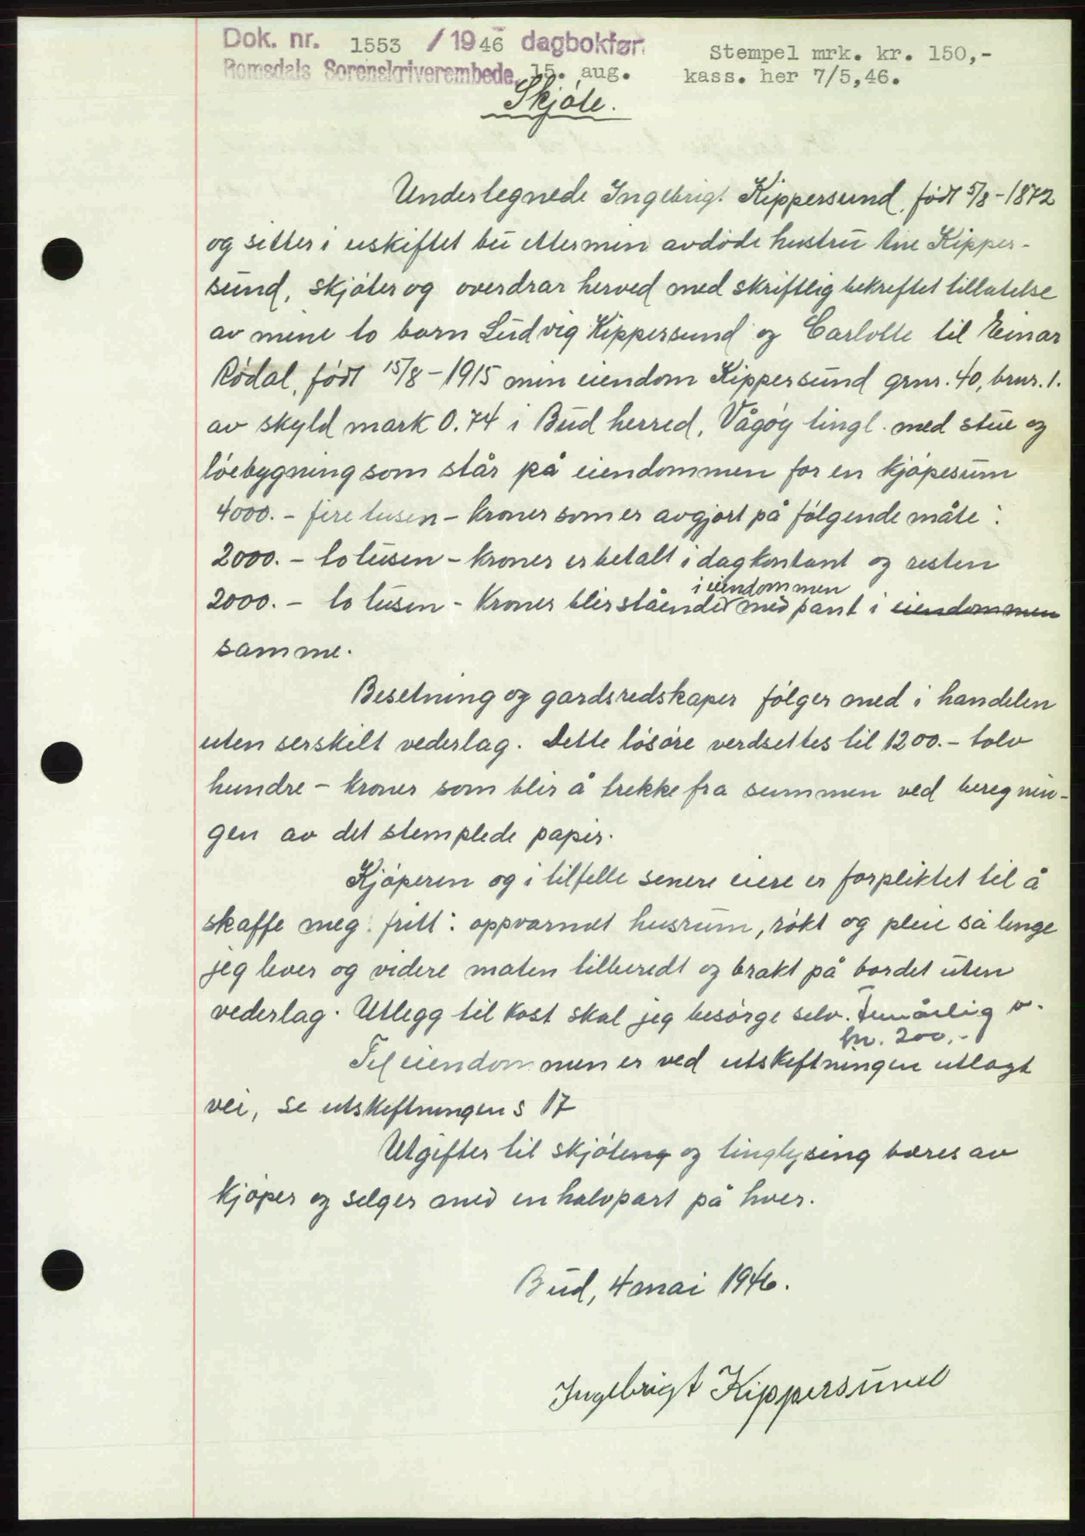 Dok. nr. 1553 / 1946 dagbokfør. Stempel mrk. kr. 150,-
Romsdals Sorenskriverembede, 15. aug. kass. her 7/5,46.
Skjøte.
Undertegnede Ingebrigt Kippersund, født 5/8-1872
og sitter i uskiftet bu etter min avdøde hustru Ane Kipper-
sund, skjøter og overdrar herved med skriftlig bekreftet tillatelse
av mine to barn Ludvig Kippersund og Carlotte til Einar
Rødal, født 15/8-1915 min eiendom Kippersund grnr. 40, brnr. 1.
av skyld mark 0.74 i Bud herred, Vågøy tingl. med stue og
løebygning som står på eiendommen for en kjøpesum
4000.- fire tusen - kroner som er avgjort på følgende måte:
2000.- to tusen - kroner er betalt i dag kontant og resten
i eiendommen
2000.- to tusen - kroner blir stående med pant i eiendommen
samme.
Besetning og gardsredskaper følger med i handelen
uten serskilt vederlag. Dette løsøre verdsettes til 1200.- tolv
hundre - kroner som blir å trekke fra summen ved beregnin-
gen av det stemplede papir.
Kjøperen og i tilfelle senere eiere er forpliktet til å
skaffe meg fritt: oppvarmet husrum, røkt og pleie så lenge
jeg lever og videre maten tilberedt og brakt på bordet uten
vederlag. Utlegg til kost skal jeg besørge selv. Femårlig v.
kr. 200,-
Til eiendommen er ved utskiftningen utlagt
vei, se utskiftningens 17
Utgifter til skjøteng og tinglysing bæres av
kjøper og selger med en halvpart på hver.
Bud, 4 mai 1946.
Ingebrigt Kippersund